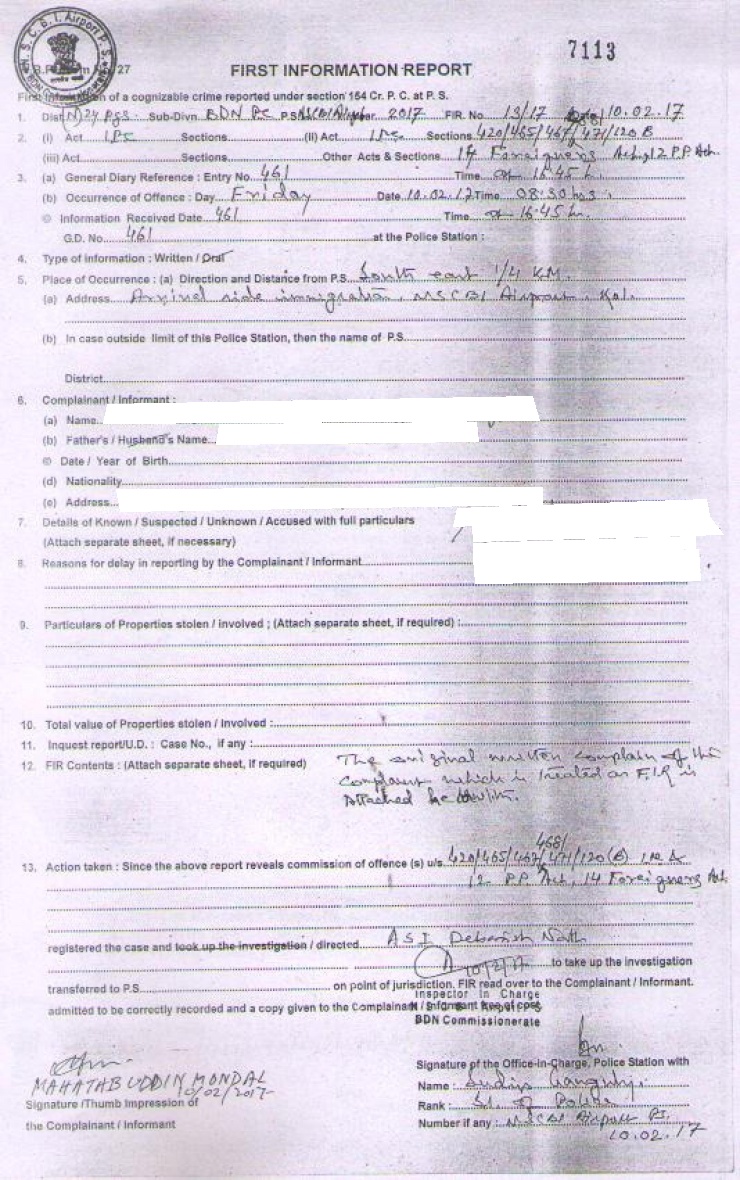 N. S. C. B. I. Airport P. S.
7113
27
FIRST INFORMATION REPORT
First Information of a cognizable crime reported under section 154 Cr. P. C. at P. S.
1. Dist (N) 24 Pgs. Sub-Divn. BDN PC P.S NSCBI Airport Year. 2017 FIR. No 13/17 10.02.17
2. (i) Act IPC Sections (II) Act IPC. Sections 420/465/467/471/120 B
(iii) Act Sections Other Acts & Sections 14 Foreigners Act, 12 P.P. Act.
3. (a) General Diary Reference : Entry No. 461 Time at 16.45 h.
(b) Occurrence of Offence : Day Friday Date 10.02.17 Time 08.30 hrs.
© Information Received Date 461 Time at 16.45 h.
G.D. No. 461 at the Police Station :
4. Type of information : Written / Oral
5. Place of Occurrence : (a) Direction and Distance from P.S. South east 1/4 KM.
(a) Address Arrival side immigration, NSCBI Airport, Kol.
(b) In case outside limit of this Police Station, then the name of P.S.
District
6. Complainant / Informant :
(a) Name
(b) Father's / Husband's Name
© Date / Year of Birth
(d) Nationality
(e) Address
7. Details of Known / Suspected / Unknown / Accused with full particulars
(Attach separate sheet, if necessary)
8. Reasons for delay in reporting by the Complainant / Informant
9. Particulars of Properties stolen / involved ; (Attach separate sheet, if required) :
10. Total value of Properties stolen / Involved :
11. Inquest report/U.D. : Case No., if any :
12. FIR Contents : (Attach separate sheet, if required) The original written complain of the
Complaint which is treated as FIR is
Attached herewith.
468/
13. Action taken : Since the above report reveals commission of offence (s) u/s. 420/465/467/471/120(B) IPC &
12 P.P. Act, 14 Foreigners Act.
registered the case and took up the investigation / directed ASI Debasish Nath
10/2/17 to take up the investigation
transferred to P.S. on point of jurisdiction. FIR read over to the Complainant / Informant.
Inspector In Charge
admitted to be correctly recorded and a copy given to the Complainant / Informant free of cost
Airport P S
BDN Commissionerate
Signature of the Office-in-Charge, Police Station with
MAHATABUDDIN MONDAL
10/02/2017
Name : Sudip Ganguly.
Signature /Thumb Impression of
Rank : S.I. of Police
the Complainant / Informant
Number if any : NSCBI Airport PS.
10.02.17